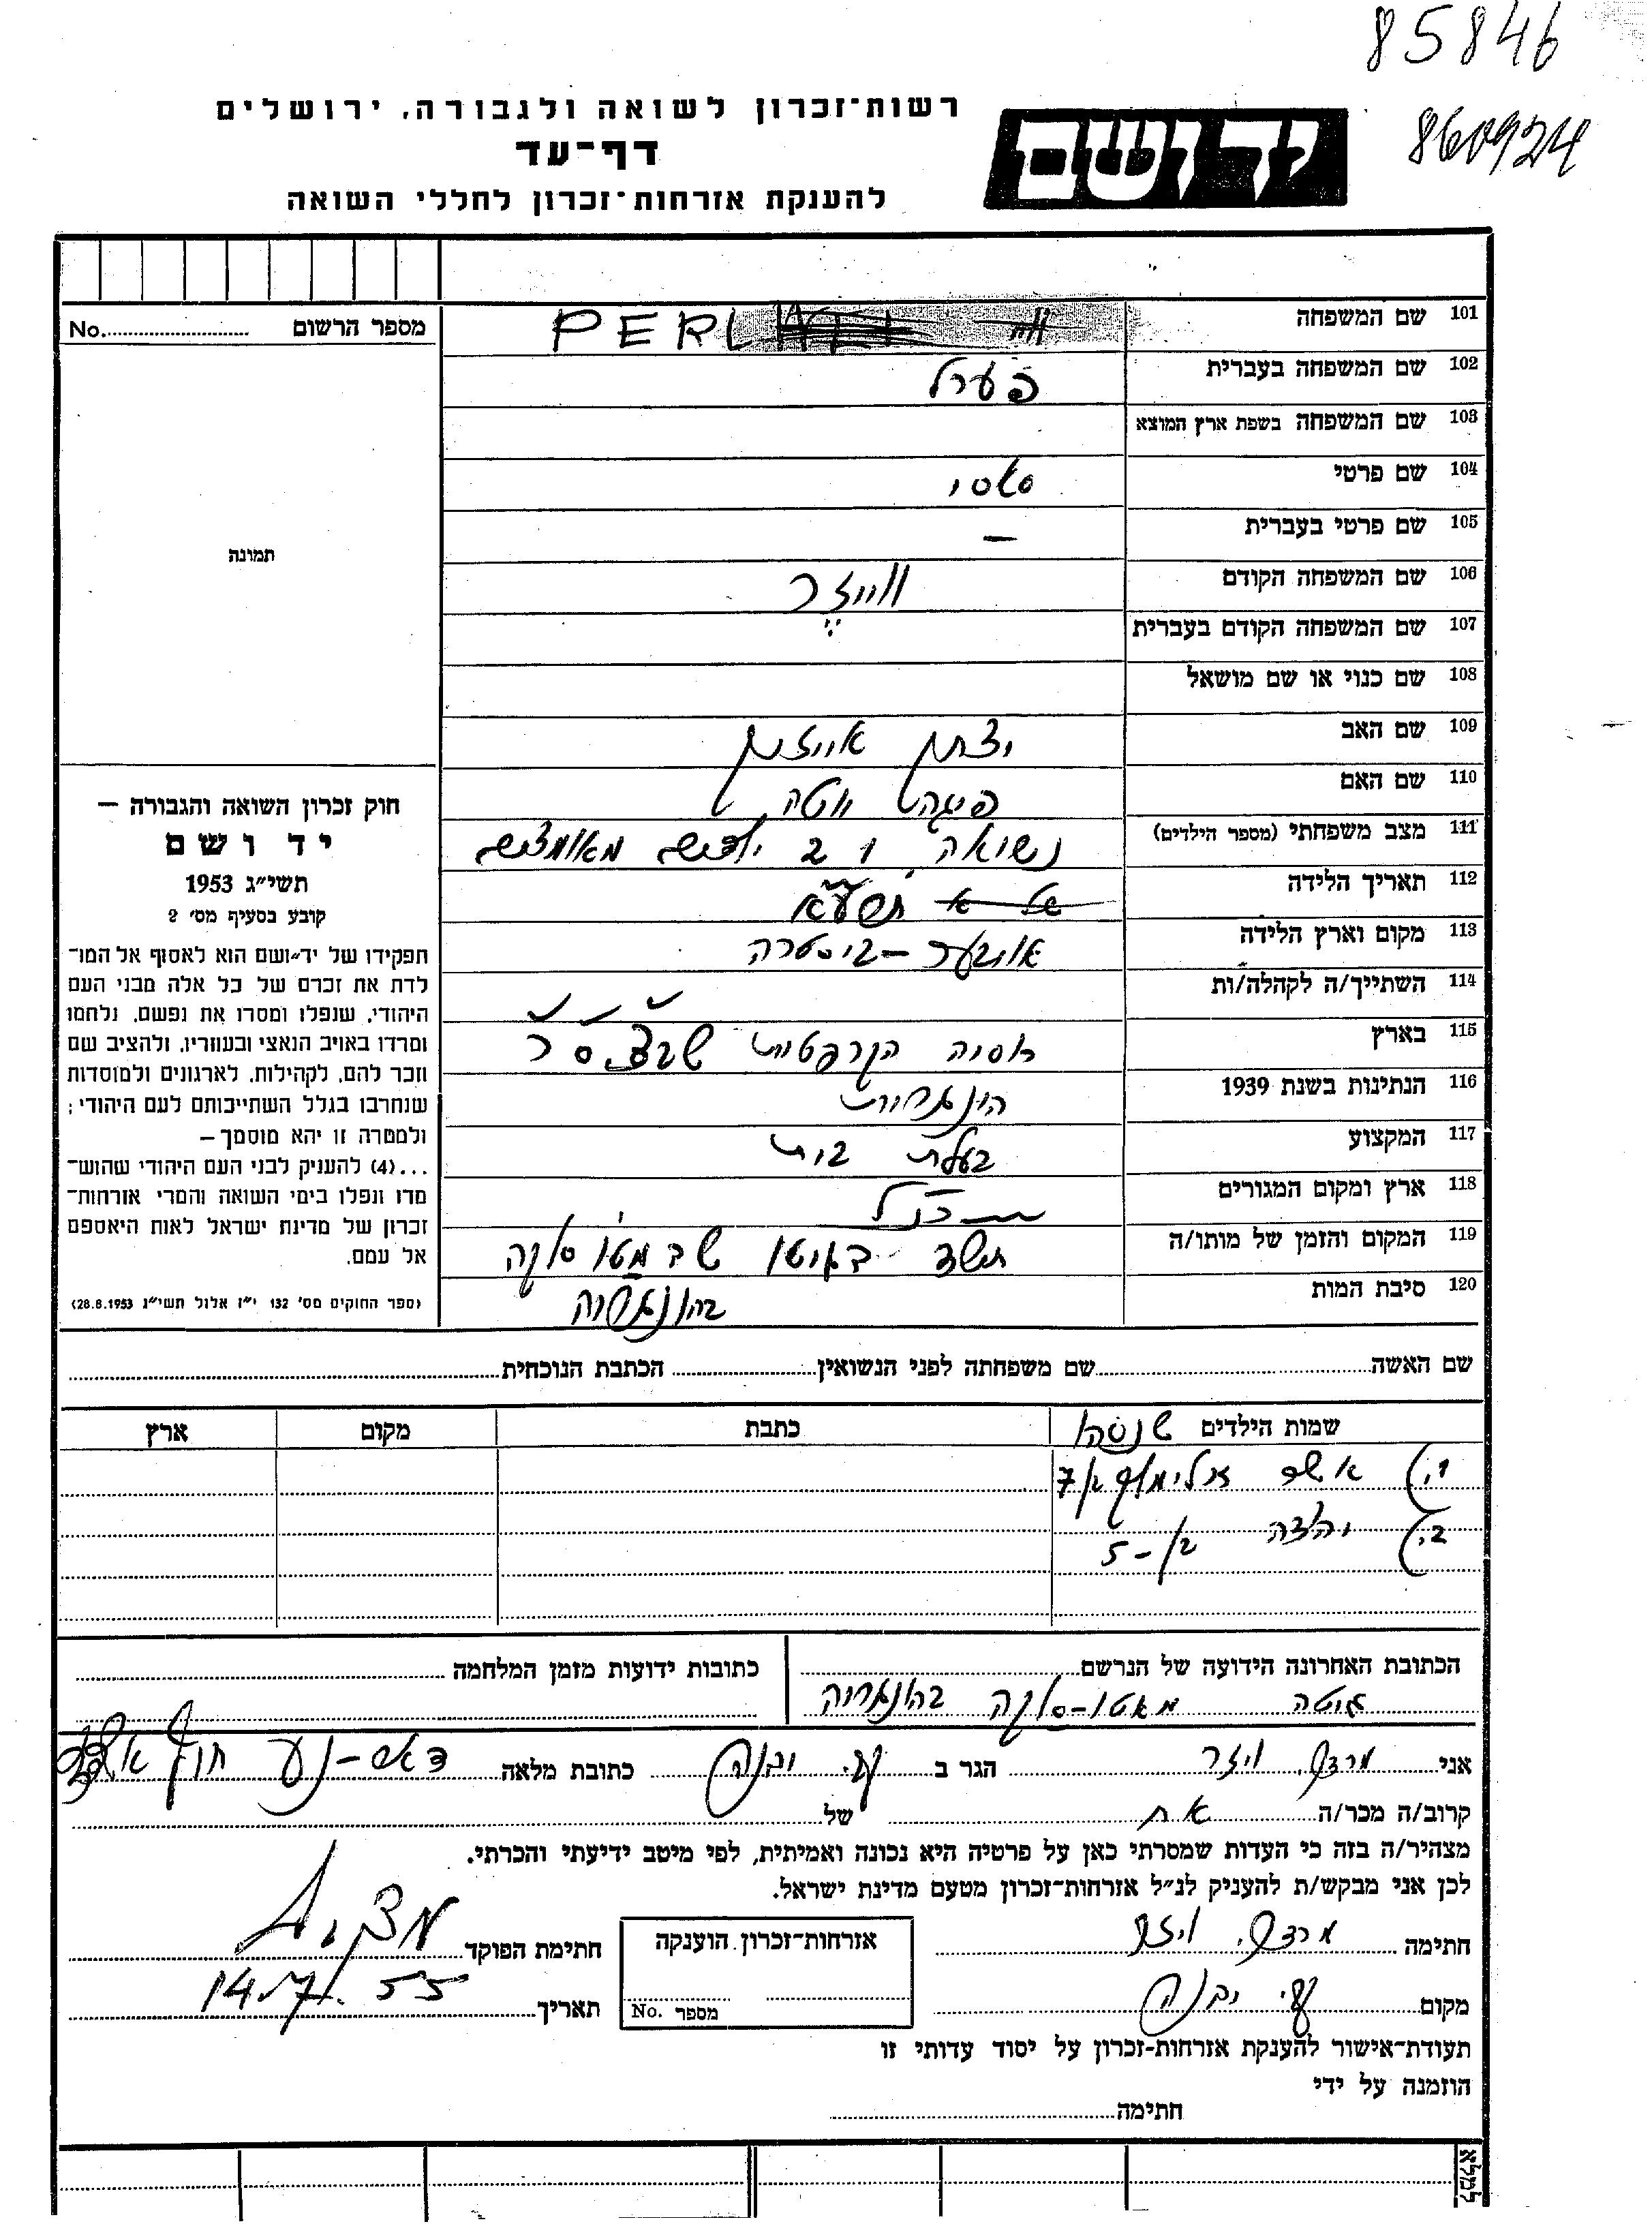 85846
860924
יד ושם
רשות־זכרון לשואה ולגבורה, ירושלים
דף־עד
להענקת אזרחות־זכרון לחללי השואה
101 שם המשפחה PERL
מספר הרשום No.
102 שם המשפחה בעברית פערל
103 שם המשפחה בשפת ארץ המוצא
104 שם פרטי סאסי
105 שם פרטי בעברית —
תמונה
106 שם המשפחה הקודם ווייזר
107 שם המשפחה הקודם בעברית
108 שם כנוי או שם מושאל
109 שם האב יצחק אייזיק
110 שם האם
111 מצב משפחתי (מספר הילדים) נשואה ו 2 ילדים מאומצים
112 תאריך הלידה
113 מקום וארץ הלידה אויבער־ביסטרה
114 השתייך/ה לקהלה/ות
115 בארץ רוסיה הקרפטית
116 הנתינות בשנת 1939 הונגרית
117 המקצוע בעלת בית
118 ארץ ומקום המגורים כנ"ל
119 המקום והזמן של מותו/ה
120 סיבת המות בהונגריה
חוק זכרון השואה והגבורה —
יד ושם
תשי״ג 1953
קובע בסעיף מס׳ 2
תפקידו של יד־ושם הוא לאסוף אל המו־
לדת את זכרם של כל אלה מבני העם
היהודי, שנפלו ומסרו את נפשם, נלחמו
ומרדו באויב הנאצי ובעוזריו, ולהציב שם
וזכר להם, לקהילות, לארגונים ולמוסדות
שנחרבו בגלל השתייכותם לעם היהודי;
ולמטרה זו יהא מוסמך—
...(4) להעניק לבני העם היהודי שהוש־
מדו ונפלו בימי השואה והמרי אזרחות־
זכרון של מדינת ישראל לאות היאספם
אל עמם.
(ספר החוקים מס׳ 132 י״ז אלול תשי״ג 28.8.1953)
שם האשה שם משפחתה לפני הנשואין הכתבת הנוכחית
שמות הילדים שנספו כתבת מקום ארץ
1.) אשר
2.) 5
הכתובת האחרונה הידועה של הנרשם כתובות ידועות מזמן המלחמה
בהונגריה
אני מרדכי ויזר הגר ב יבנה כתובת מלאה
קרוב/ה מכר/ה אח של
מצהיר/ה בזה כי העדות שמסרתי כאן על פרטיה היא נכונה ואמיתית, לפי מיטב ידיעתי והכרתי.
לכן אני מבקש/ת להעניק לנ״ל אזרחות־זכרון מטעם מדינת ישראל.
חתימה מרדכי ויזר
אזרחות־זכרון הוענקה
מספר No.
חתימת הפוקד
מקום יבנה
תאריך 14.7.55
תעודת־אישור להענקת אזרחות־זכרון על יסוד עדותי זו
הוזמנה על ידי
חתימה
למלא